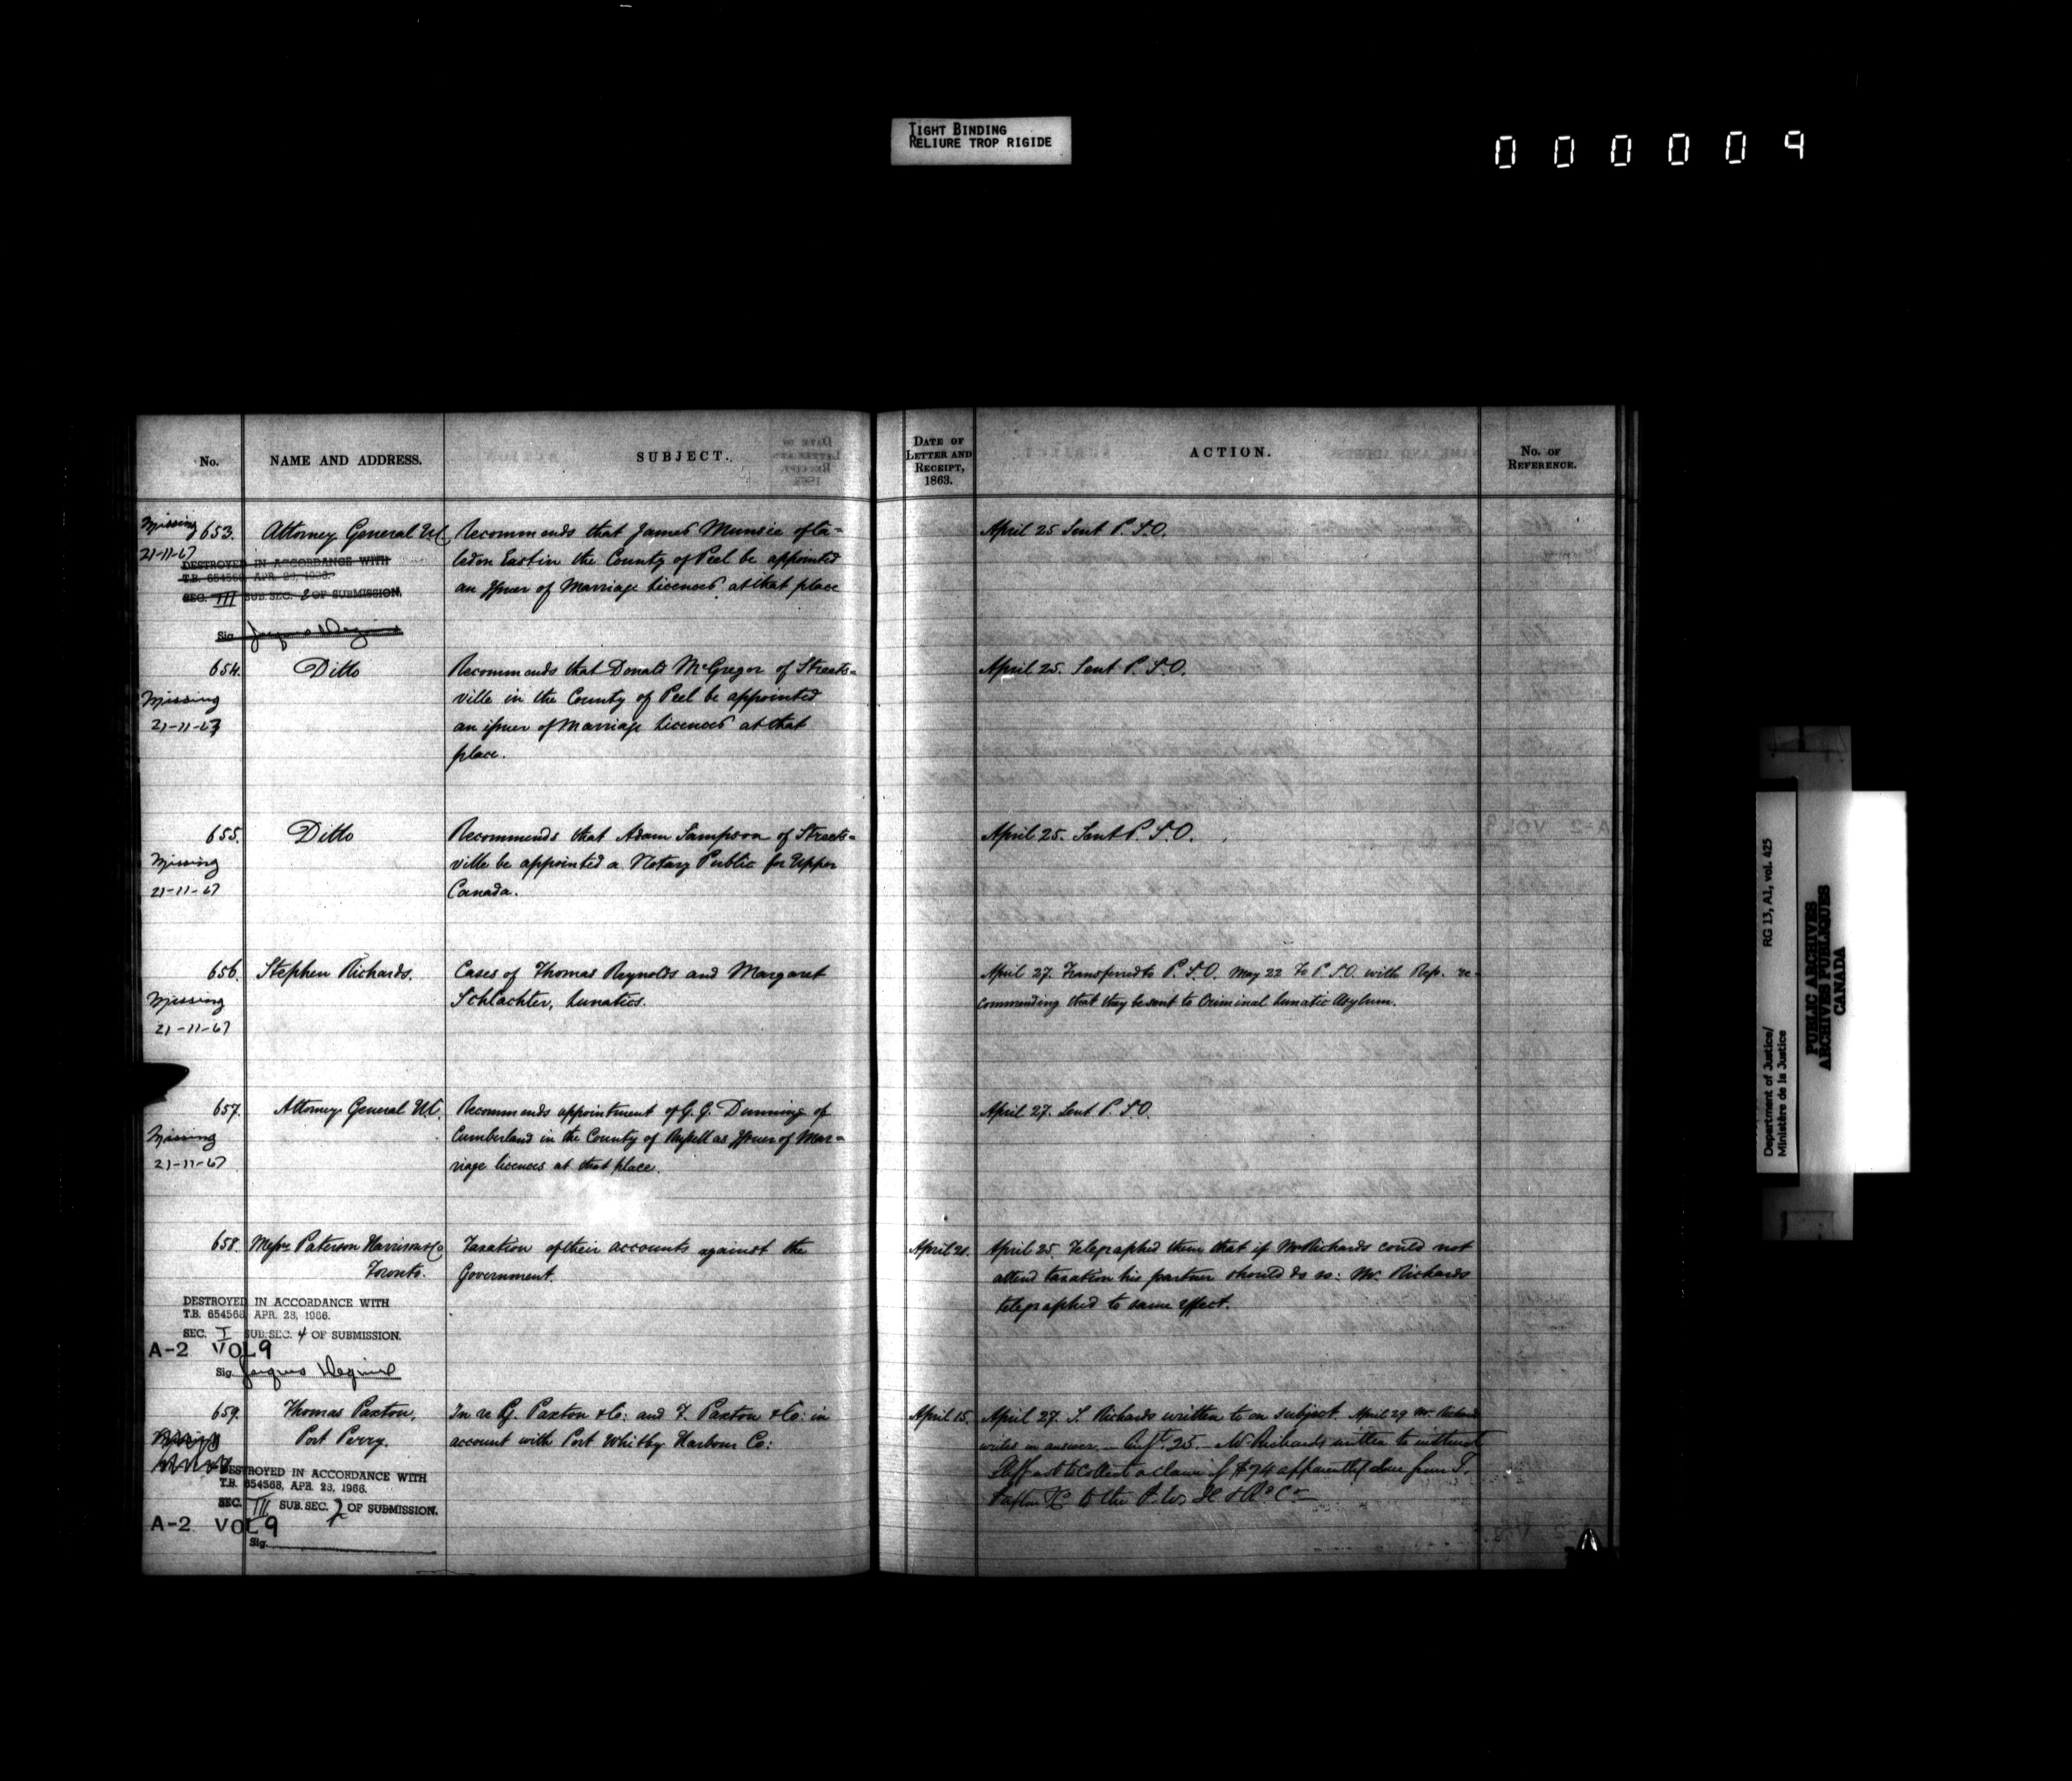 TIGHT BINDING
RELIURE TROP RIGIDE
000009
No.
NAME AND ADDRESS.
SUBJECT.
DATE OF
LETTER AND
RECEIPT,
1863.
ACTION.
No. OF
REFERENCE.
Missing
21-11-67
653.
Attorney General UC
Recommends that James Munsie of Ca=
ledon East in the County of Peel be appointed
an Issuer of Marriage Licences at that place
April 25 Sent P.S.O.
DESTROYED IN ACCORDANCE WITH
T.B. 654568, APR. 28, 1966.
SEC. III SUB.SEC. 2 OF SUBMISSION.
Sig.
654.
Missing
21-11-67
Ditto
Recommends that Donald McGregor of Streets=
ville in the County of Peel be appointed
an issuer of Marriage Licences at that
place.
April 25. Sent P.S.O.
655.
Missing
21-11-67
Ditto
Recommends that Adam Sampson of Streets=
ville be appointed a Notary Public for Upper
Canada.
April 25. Sent P.S.O.
656.
Missing
21-11-67
Stephen Richards.
Cases of Thomas Reynolds and Margaret
Schlachter, Lunatics.
April 27. Transferred to P.S.O. May 22 To P.S.O. with Rep. re-
commending that they be sent to Criminal Lunatic Asylum.
657.
Missing
21-11-67
Attorney General UC.
Recommends appointment of G. G. Dunning of
Cumberland in the County of Russell as Issuer of Mar=
riage licences at that place.
April 27. Sent P.S.O.
658.
Messrs Paterson Harrison & Co
Toronto.
Taxation of their accounts against the
Government.
April 21.
April 25. Telegraphed them that if Mr Richards could not
attend taxation his partner should do so: Mr. Richards
telegraphed to same effect.
DESTROYED IN ACCORDANCE WITH
T.B. 654568, APR. 28, 1966.
SEC. I SUB.SEC. 4 OF SUBMISSION.
A-2 VOL 9
Sig.
659.
Thomas Paxton,
Port Perry.
In re G. Paxton & Co: and T. Paxton & Co: in
account with Port Whitby Harbour Co:
April 15.
April 27. S. Richards written to on subject. April 29 Mr. Richards
writes in answer. 25. Mr Richards written to instruct
to collect a claim of $74 apparently due from T.
Paxton & Co to the
DESTROYED IN ACCORDANCE WITH
T.B. 654568, APR. 28, 1966.
SEC. III SUB.SEC. 2 OF SUBMISSION.
A-2 VOL 9
Sig.
Department of Justice/ RG 13, A1, vol. 425
Ministère de la Justice
PUBLIC ARCHIVES
ARCHIVES PUBLIQUES
CANADA